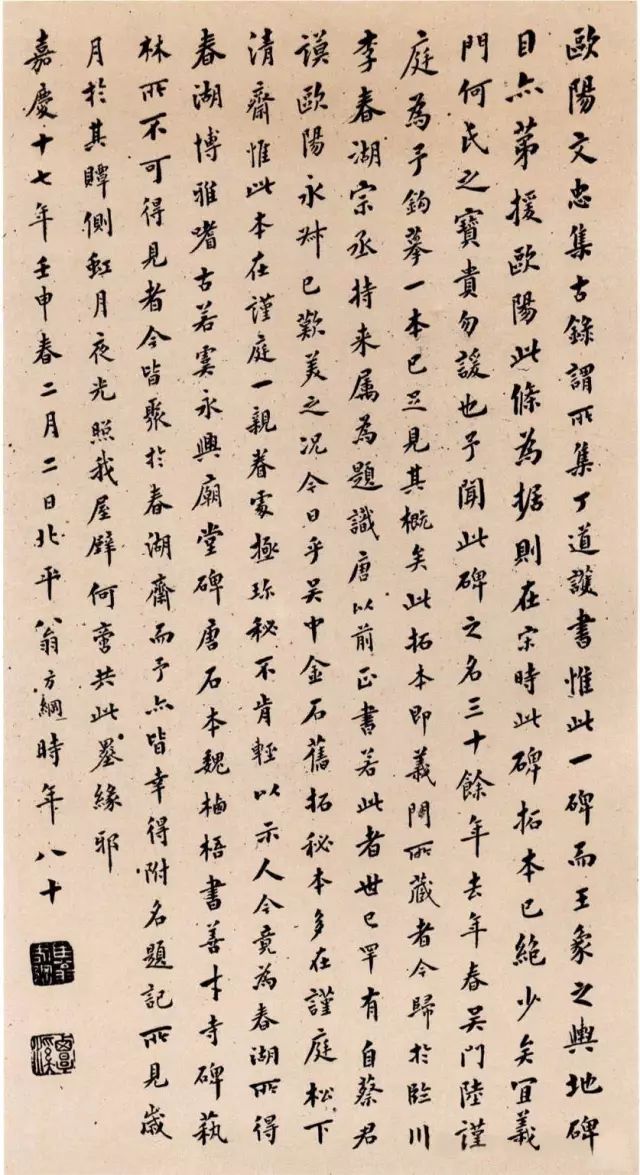 歐陽文忠集古錄謂所集丁道護書惟此一碑而王象之輿地碑
目亦第援歐陽此條為据則在宋時此碑拓本已絕少矣宜義
門何氏之寶貴勿諼也予聞此碑之名三十餘年去年春吳門陸謹
庭為予鈎摹一本已足見其概矣此拓本即義門所藏者今歸於臨川
李春湖宗丞持来属為題識唐以前正書若此者世已罕有自蔡君
謨歐陽永叔已歎美之况今日乎吳中金石舊拓秘本多在謹庭松下
清齋惟此本在謹庭一親眷處極珍秘不肯輕以示人今竟為春湖所得
春湖博雅嗜古若虞永興廟堂碑唐石本魏栖梧書善才寺碑蓺
林所不可得見者今皆聚於春湖齋而予亦皆幸得附名題記所見嵗
月於其贉側虹月夜光照我屋壁何啻共此墨緣耶
嘉慶十七年壬申春二月二日北平翁方綱時年八十